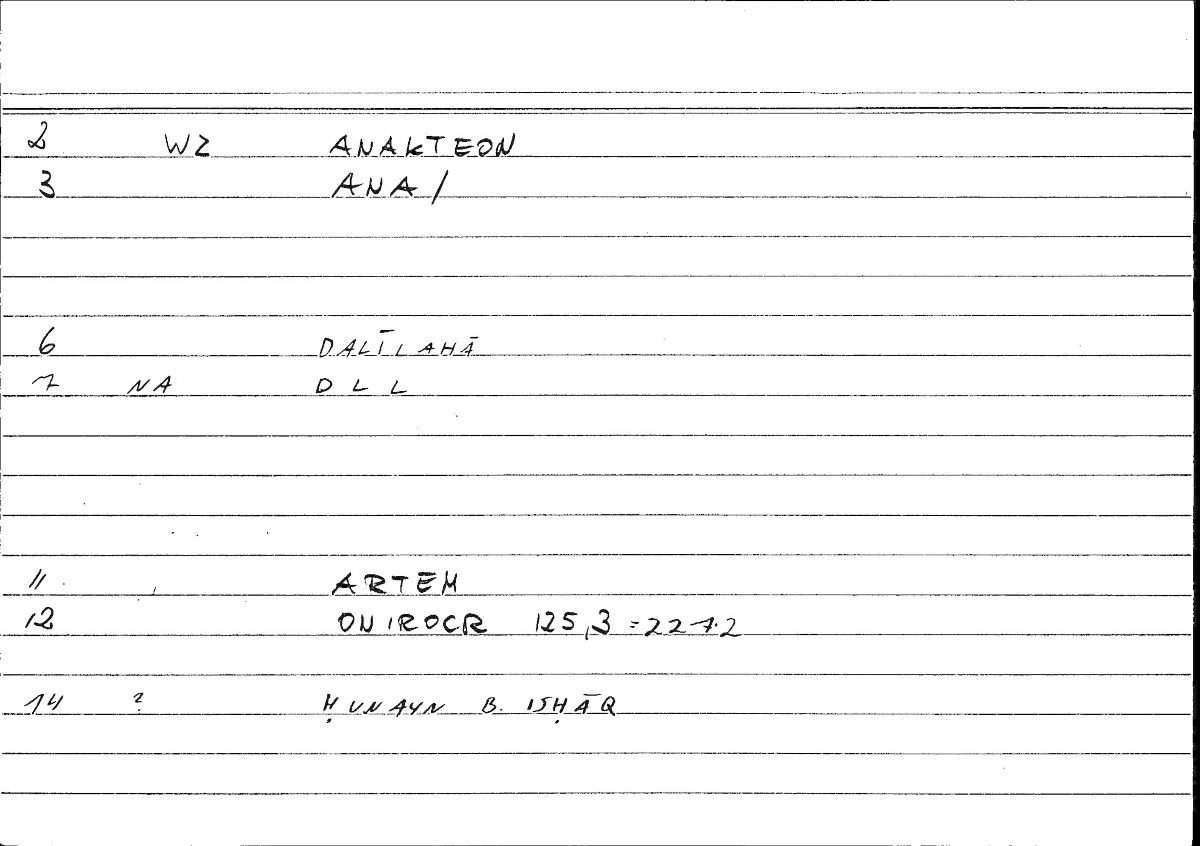 2 WZ ANAKTEON
3 ANA/
6 DALĪLAHĀ
7 NA D L L
11 ARTEM
12 ONIROCR 125,3 = 227.2
14 ? ḤUNAYN B. ISḤĀQ